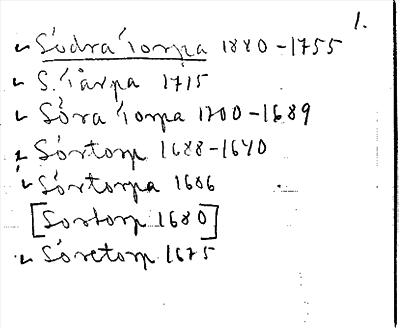 1.
Södra Torpa 1880-1755
S. Tårpa 1715
Söra Torpa 1700-1689
Sörtorp 1688-1640
Sörtorpa 1686
[Sortorp 1680]
Söretorp 1675